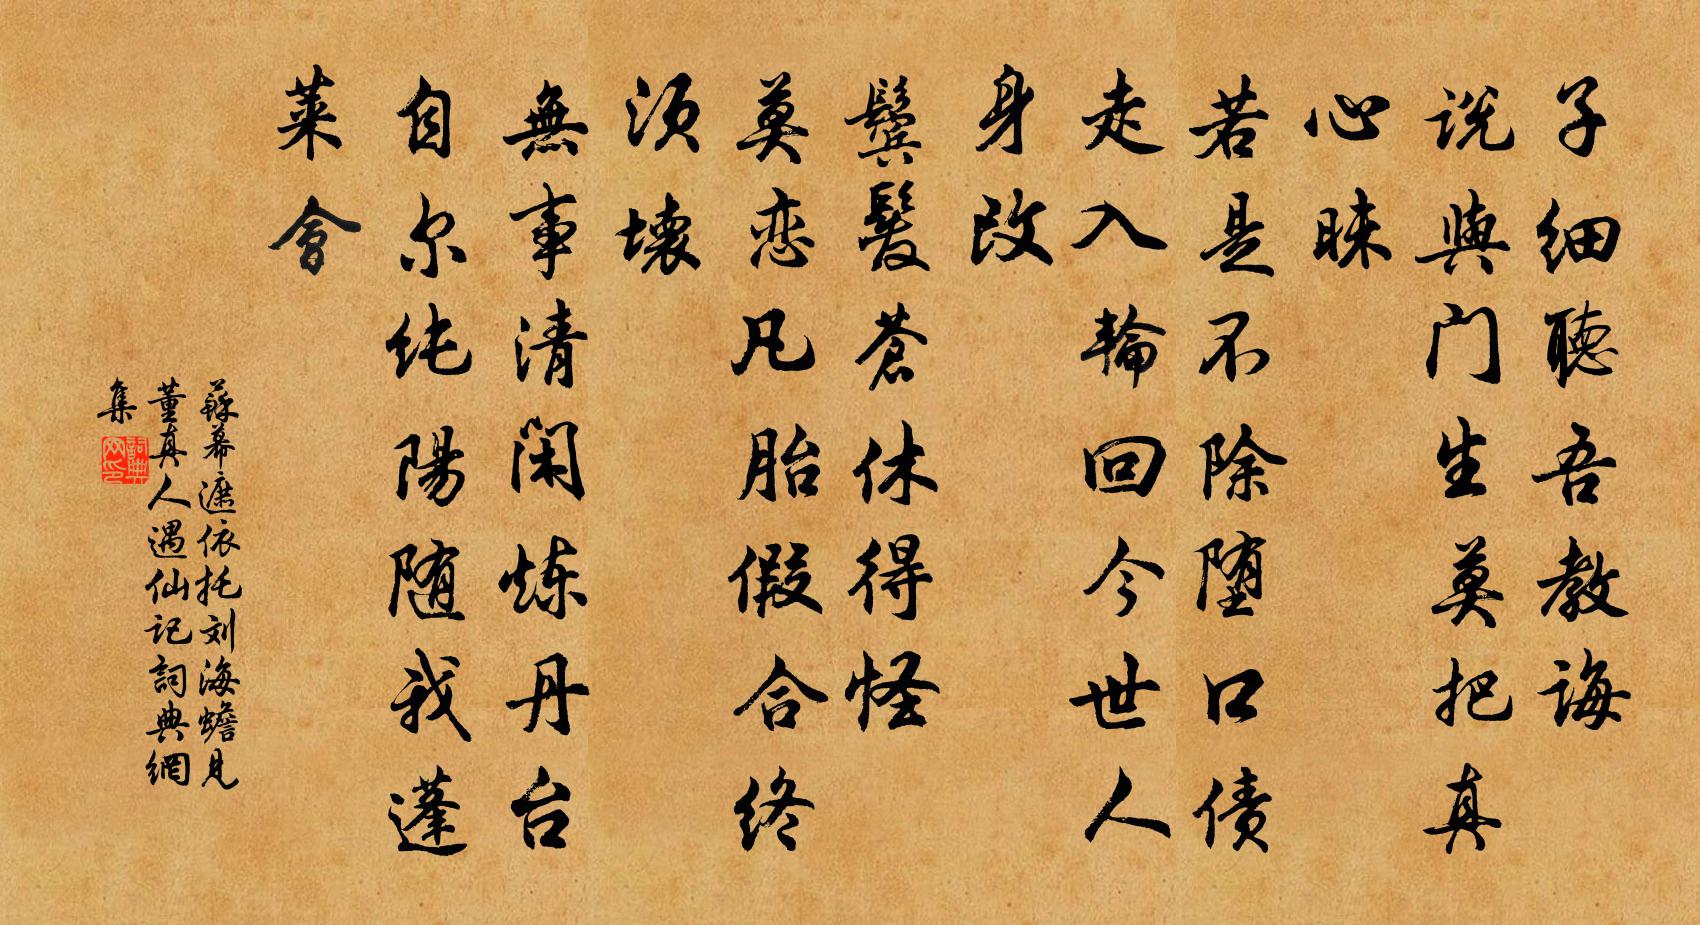 子細聽吾教誨
说與门生莫把真
心昧
若是不除堕口债
走入輪回今世人
身改
鬓髮蒼休得怪
莫恋凡胎假合终
须壞
無事清闲炼丹台
自尔纯陽随我蓬
莱會
蘇幕遮依托刘海蟾見
董真人遇仙记詞典網
集